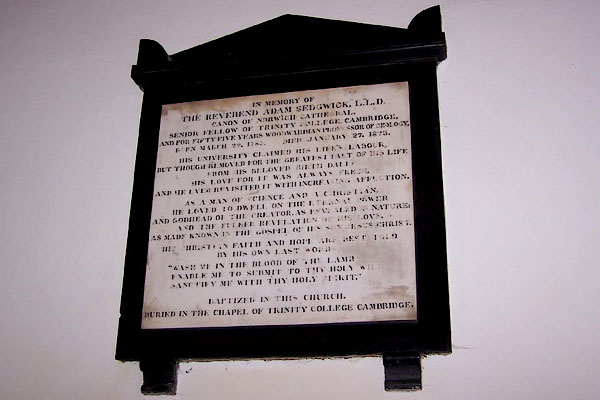 IN MEMORY OF
THE REVEREND ADAM SEDGWICK, L.L.D.
CANON OF NORWICH CATHEDRAL,
SENIOR FELLOW OF TRINITY COLLEGE, CAMBRIDGE,
AND FOR FIFTY FIVE YEARS WOODWARDIAN PROFESSOR OF GEOLOGY,
BORN MARCH 22, DIED JANUARY 27, 1873.
HIS UNIVERSITY CLAIMED HIS LIFE'S LABOUR,
BUT THOUGH REMOVED FOR THE GREATEST PART OF HIS LIFE
FROM HIS BELOVED BIRTH DALE
HIS LOVE FOR IT WAS ALWAYS FRESH,
AND HE EVER REVISITED IT WITH INCREASING AFFECTION.
AS A MAN OF SCIENCE AND A CHRISTIAN,
HE LOVED TO DWELL ON THE ETERNAL POWER
AND GODHEAD OF THE CREATOR, AS REVEALED IN NATURE;
AND THE FULLER REVELATION OF HIS LOVE,
AS MADE KNOWN IN THE GOSPEL OF HIS SON JESUS CHRIST.
HIS CHRISTIAN FAITH AND HOPE ARE BEST TOLD
BY HIS OWN LAST WORDS
"WASH ME IN THE BLOOD OF THE LAMB
ENABLE ME TO SUBMIT TO THY HOLY WILL
SANCTIFY ME WITH THY HOLY SPIRIT."
BAPTIZED IN THIS CHURCH.
BURIED IN THE CHAPEL OF TRINITY COLLEGE CAMBRIDGE.